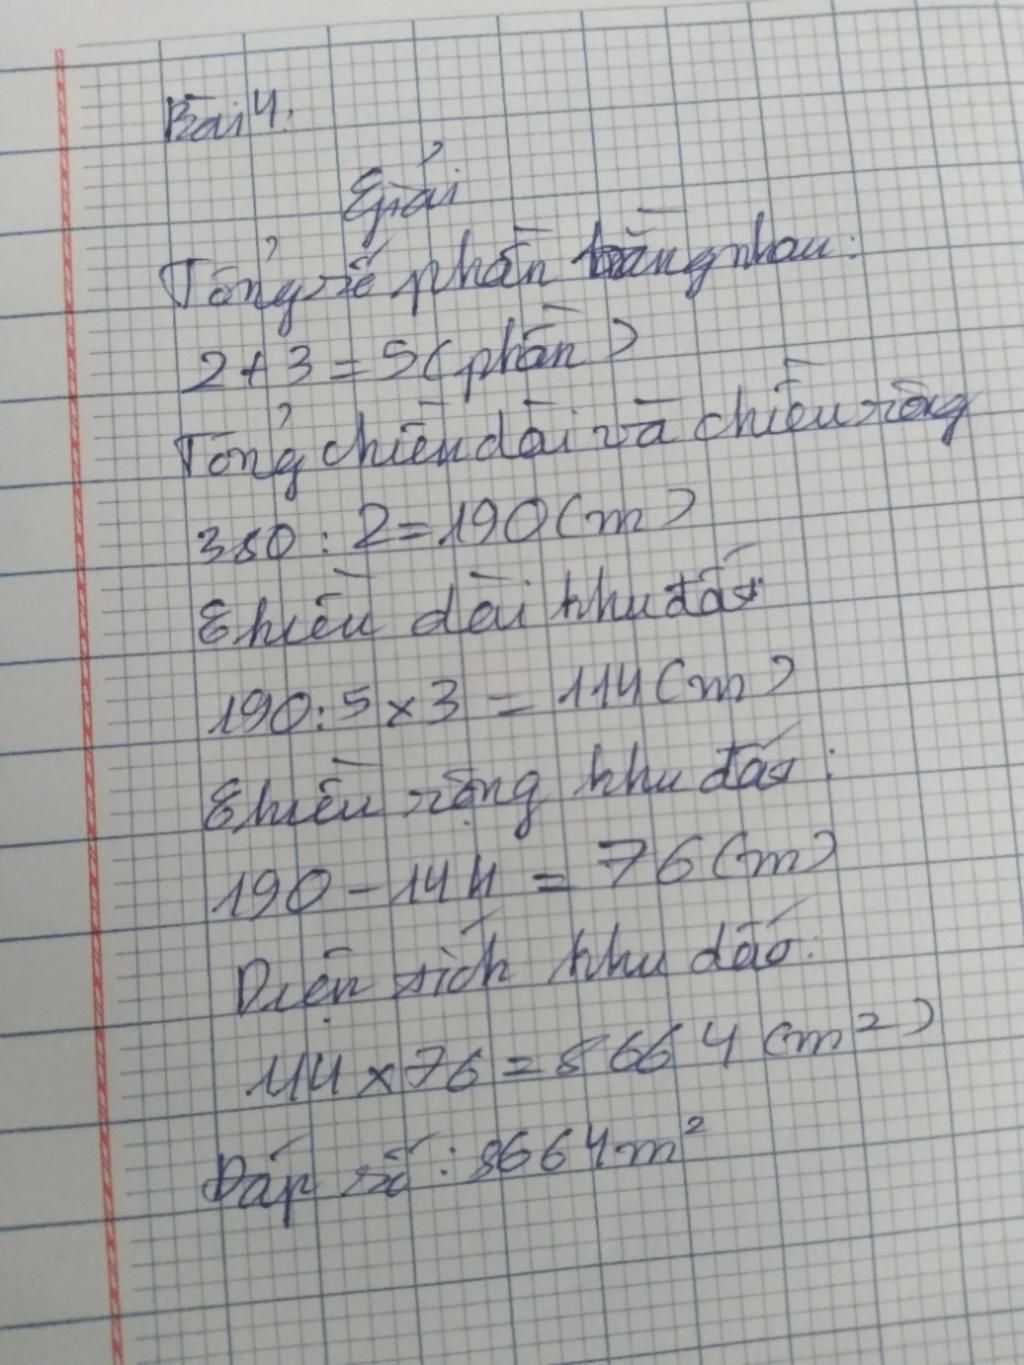 Bài 4.
Giải
Tổng số phần bằng nhau:
2 + 3 = 5 (phần)
Tổng chiều dài và chiều rộng
380 : 2 = 190 (m)
Chiều dài khu đất
190 : 5 x 3 = 114 (m)
Chiều rộng khu đất :
190 - 144 = 76 (m)
Diện tích khu đất :
144 x 76 = 8664 (m²)
Đáp số : 8664 m²